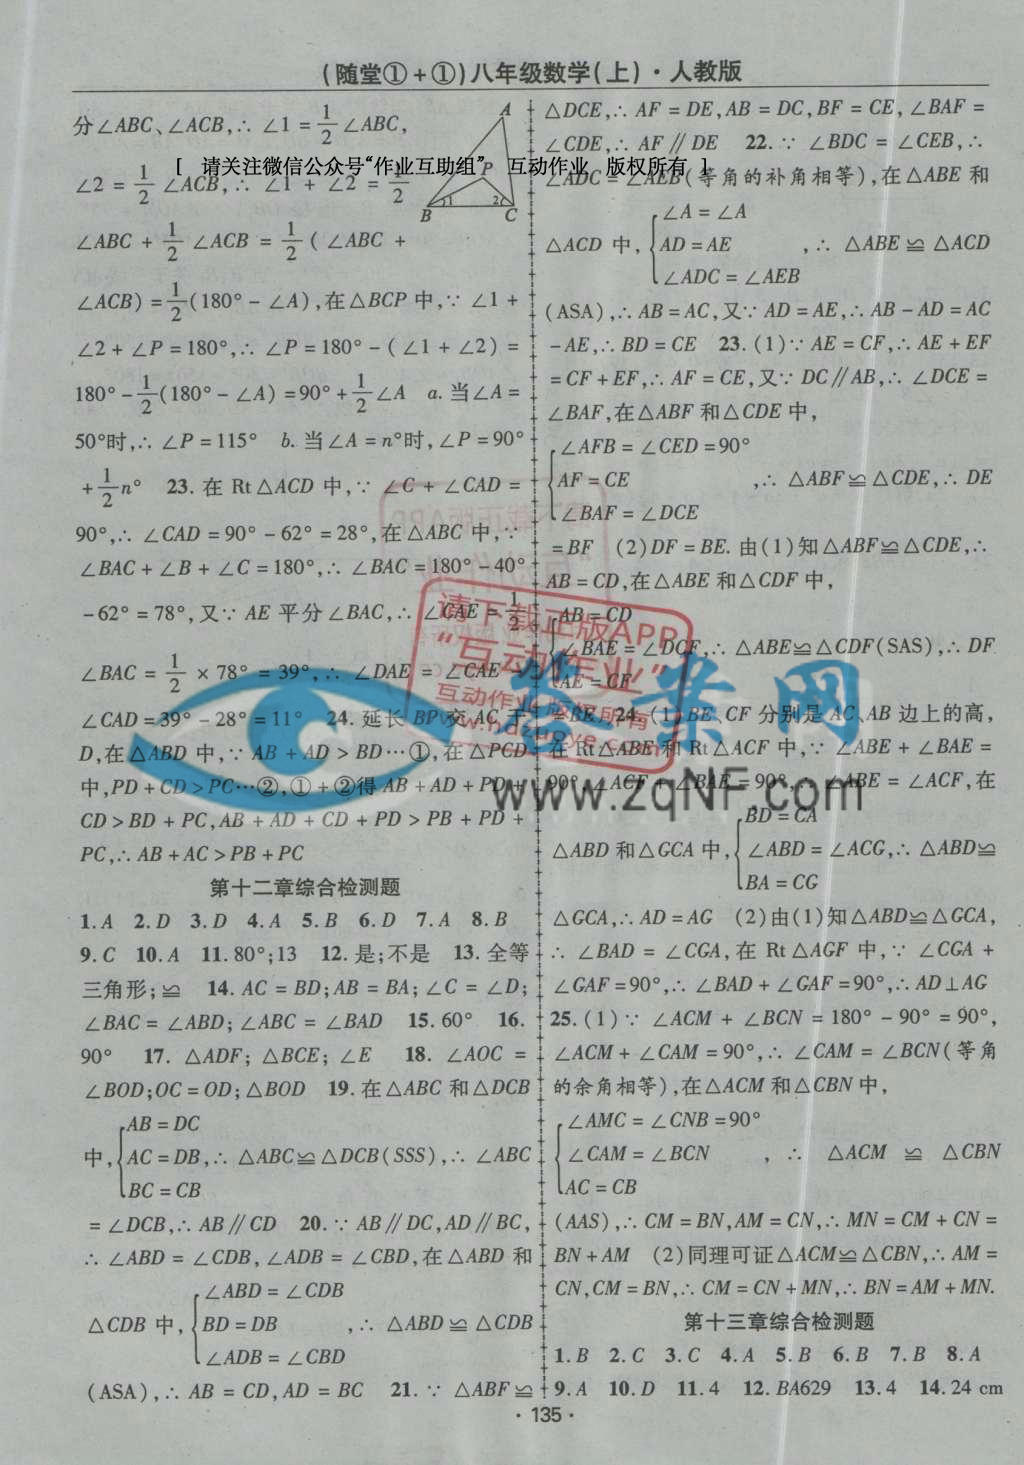 (随堂①+①)八年级数学(上)·人教版
分∠ABC、∠ACB,∴ ∠1 = 1/2 ∠ABC,
[ 请关注微信公众号“作业互助组” 互动作业 版权所有 ]
∠2 = 1/2 ∠ACB,∴ ∠1 + ∠2 = 1/2
∠ABC + 1/2 ∠ACB = 1/2 ( ∠ABC +
∠ACB) = 1/2(180° - ∠A),在△BCP 中,∵ ∠1 +
∠2 + ∠P = 180°,∴ ∠P = 180° - ( ∠1 + ∠2) =
180° - 1/2(180° - ∠A) = 90° + 1/2∠A a. 当∠A =
50°时,∴ ∠P = 115° b. 当∠A = n°时,∠P = 90°
+ 1/2n° 23. 在 Rt△ACD 中,∵ ∠C + ∠CAD =
90°,∴ ∠CAD = 90° - 62° = 28°,在△ABC 中,∵
∠BAC + ∠B + ∠C = 180°,∴ ∠BAC = 180° - 40°
- 62° = 78°,又∵ AE 平分∠BAC,∴ ∠CAE = 1/2
∠BAC = 1/2 × 78° = 39°,∴ ∠DAE = ∠CAE -
∠CAD = 39° - 28° = 11° 24. 延长 BP 交 AC 于
D,在△ABD 中,∵ AB + AD > BD…①,在△PCD
中,PD + CD > PC…②,① + ②得 AB + AD + PD +
CD > BD + PC,AB + AD + CD + PD > PB + PD +
PC,∴ AB + AC > PB + PC
第十二章综合检测题
1. A 2. D 3. D 4. A 5. B 6. D 7. A 8. B
9. C 10. A 11. 80°;13 12. 是;不是 13. 全等
三角形;≌ 14. AC = BD;AB = BA;∠C = ∠D;
∠BAC = ∠ABD;∠ABC = ∠BAD 15. 60° 16.
90° 17. △ADF;△BCE;∠E 18. ∠AOC =
∠BOD;OC = OD;△BOD 19. 在△ABC 和△DCB
AB = DC
中,AC = DB,∴ △ABC≌△DCB(SSS),∴ ∠ABC
BC = CB
= ∠DCB,∴ AB∥CD 20. ∵ AB∥DC,AD∥BC,
∴ ∠ABD = ∠CDB,∠ADB = ∠CBD,在△ABD 和
∠ABD = ∠CDB
△CDB 中,BD = DB ,∴ △ABD≌△CDB
∠ADB = ∠CBD
(ASA),∴ AB = CD,AD = BC 21. ∵ △ABF≌
△DCE,∴ AF = DE,AB = DC,BF = CE,∠BAF =
∠CDE,∴ AF∥DE 22. ∵ ∠BDC = ∠CEB,∴
∠ADC = ∠AEB(等角的补角相等),在△ABE 和
∠A = ∠A
△ACD 中,AD = AE ,∴ △ABE≌△ACD
∠ADC = ∠AEB
(ASA),∴ AB = AC,又∵ AD = AE,∴ AB - AD = AC
- AE,∴ BD = CE 23. (1)∵ AE = CF,∴ AE + EF
= CF + EF,∴ AF = CE,又∵ DC∥AB,∴ ∠DCE =
∠BAF,在△ABF 和△CDE 中,
∠AFB = ∠CED = 90°
AF = CE ,∴ △ABF≌△CDE,∴ DE
∠BAF = ∠DCE
= BF (2)DF = BE. 由(1)知△ABF≌△CDE,∴
AB = CD,在△ABE 和△CDF 中,
AB = CD
∠BAE = ∠DCF,∴ △ABE≌△CDF(SAS),∴ DF
AE = CF
= BE 24. (1)BE、CF 分别是 AC、AB 边上的高,
在 Rt△ABE 和 Rt△ACF 中,∵ ∠ABE + ∠BAE =
90°,∠ACF + ∠BAE = 90°,∴ ∠ABE = ∠ACF,在
BD = CA
△ABD 和△GCA 中,∠ABD = ∠ACG,∴ △ABD≌
BA = CG
△GCA,∴ AD = AG (2)由(1)知△ABD≌△GCA,
∴ ∠BAD = ∠CGA,在 Rt△AGF 中,∵ ∠CGA +
∠GAF = 90°,∴ ∠BAD + ∠GAF = 90°,∴ AD⊥AG
25. (1)∵ ∠ACM + ∠BCN = 180° - 90° = 90°,
∠ACM + ∠CAM = 90°,∴ ∠CAM = ∠BCN(等角
的余角相等),在△ACM 和△CBN 中,
∠AMC = ∠CNB = 90°
∠CAM = ∠BCN ,∴ △ACM≌△CBN
AC = CB
(AAS),∴ CM = BN,AM = CN,∴ MN = CM + CN =
BN + AM (2)同理可证△ACM≌△CBN,∴ AM =
CN,CM = BN,∴ CM = CN + MN,∴ BN = AM + MN.
第十三章综合检测题
1. B 2. C 3. C 4. A 5. B 6. B 7. B 8. A
9. A 10. D 11. 4 12. BA629 13. 4 14. 24 cm
· 135 ·
A
P
B
1
2
C
请下载正版APP
“互动作业”
互动作业 版权所有
答案网
www.zqNF.com